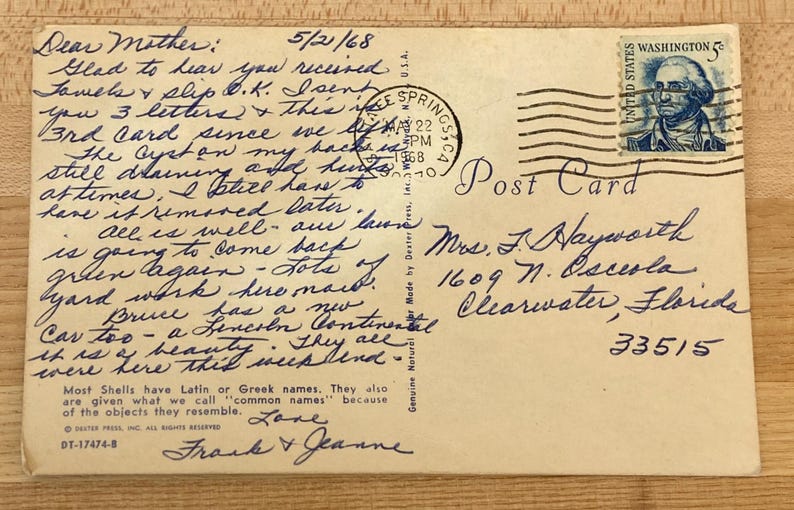 Dear Mother: 5/21/68
Glad to hear you received
towels & slip O.K. I sent
you 3 letters & this is
3rd card since we left.
The cyst on my back is
still draining and hurts
at times. I still have to
have it removed later.
All is well - our lawn
is going to come back
green again - Lots of
yard work here now.
Bruce has a new
car too - a Lincoln Continental
it is a beauty. They all
were here this week end -
Love
Frank & Jeanne
Most Shells have Latin or Greek names. They also
are given what we call "common names" because
of the objects they resemble.
© DEXTER PRESS, INC. ALL RIGHTS RESERVED
DT-17474-B
Genuine Natural Color Made by Dexter Press, Inc., West Nyack, N. Y., U.S.A.
SPRINGS, CA
MAY 22
PM
1968
UNITED STATES
WASHINGTON 5c
Post Card
Mrs. F. Hayworth
1609 N. Osceola
Clearwater, Florida
33515